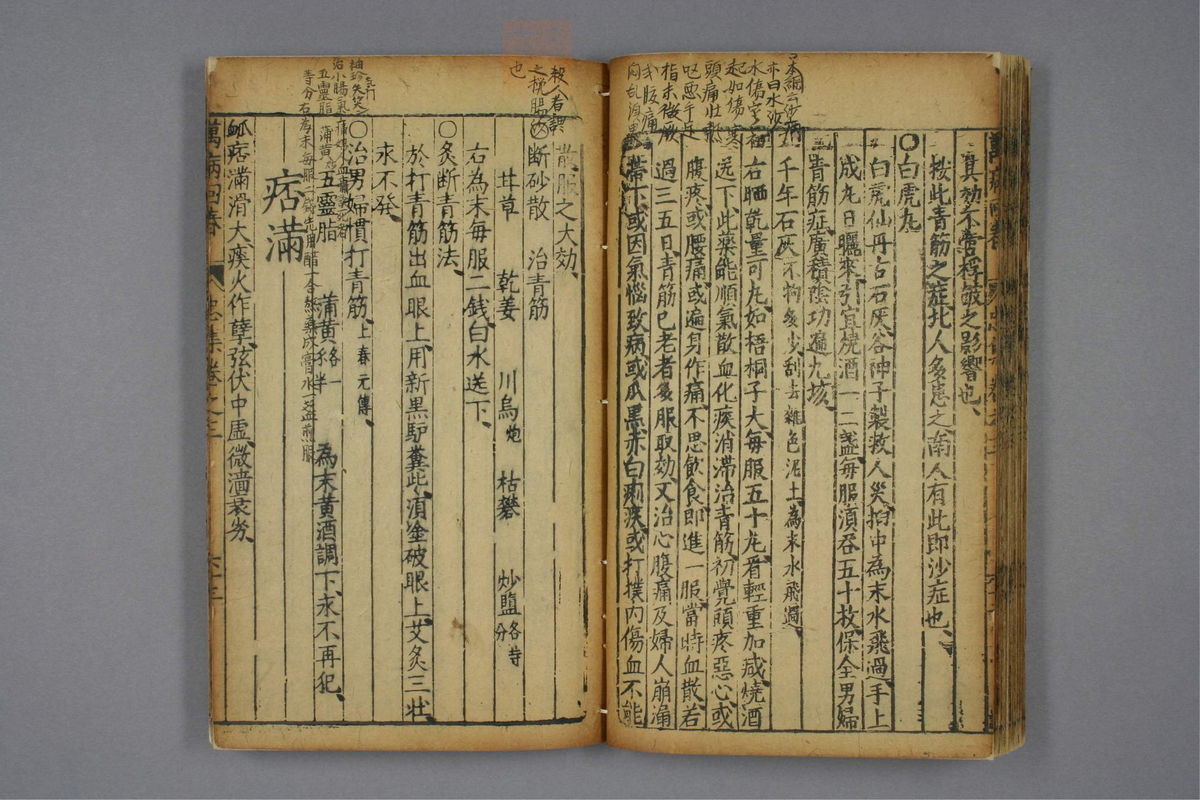 真効不啻桴鼓之影響也
按此青筋之症北人多患之南人有此即沙症也
〇白虎丸
白虎仙丹古石灰谷神子製救人災拍中為末水飛過手上
成丸日曬來引宜燒酒一二盞每服須吞五十枚保全男婦
青筋症廣積陰功遍九垓
千年石灰不拘多少刮去雜色泥土為末水飛過
右晒乾量可丸如梧桐子大每服五十丸看輕重加減燒酒
送下此藥能順氣散血化痰消滯治青筋初覺頭疼惡心或
腹疼或腰痛或遍身作痛不思飲食即進一服當時血散若
過三五日青筋已老者多服取効又治心腹痛及婦人崩漏
帶下或因氣惱致病或瓜黑赤白痢疾或打撲內傷血不能
頭痛壯
嘔惡手足
或腹痛
散服之大効
断砂散 治青筋
甘草 乾姜 川烏炮 枯礬 炒盬各等分
右為末每服二錢白水送下
〇灸断青筋法
於打青筋出血眼上用新黑馿糞些須塗破眼上艾灸三壯
永不發
〇治男婦慣打青筋上春元傳
五靈脂 蒲黃各一 為末黃酒調下永不再犯
痞滿
脉痞滿滑大痰火作孽弦伏中虛微濇衰劣
治小腸氣
五靈脂 蒲黃
右為末每服二錢先用醋一合熬藥成膏水一盞煎服
萬病回春
忠集卷之三
六十三